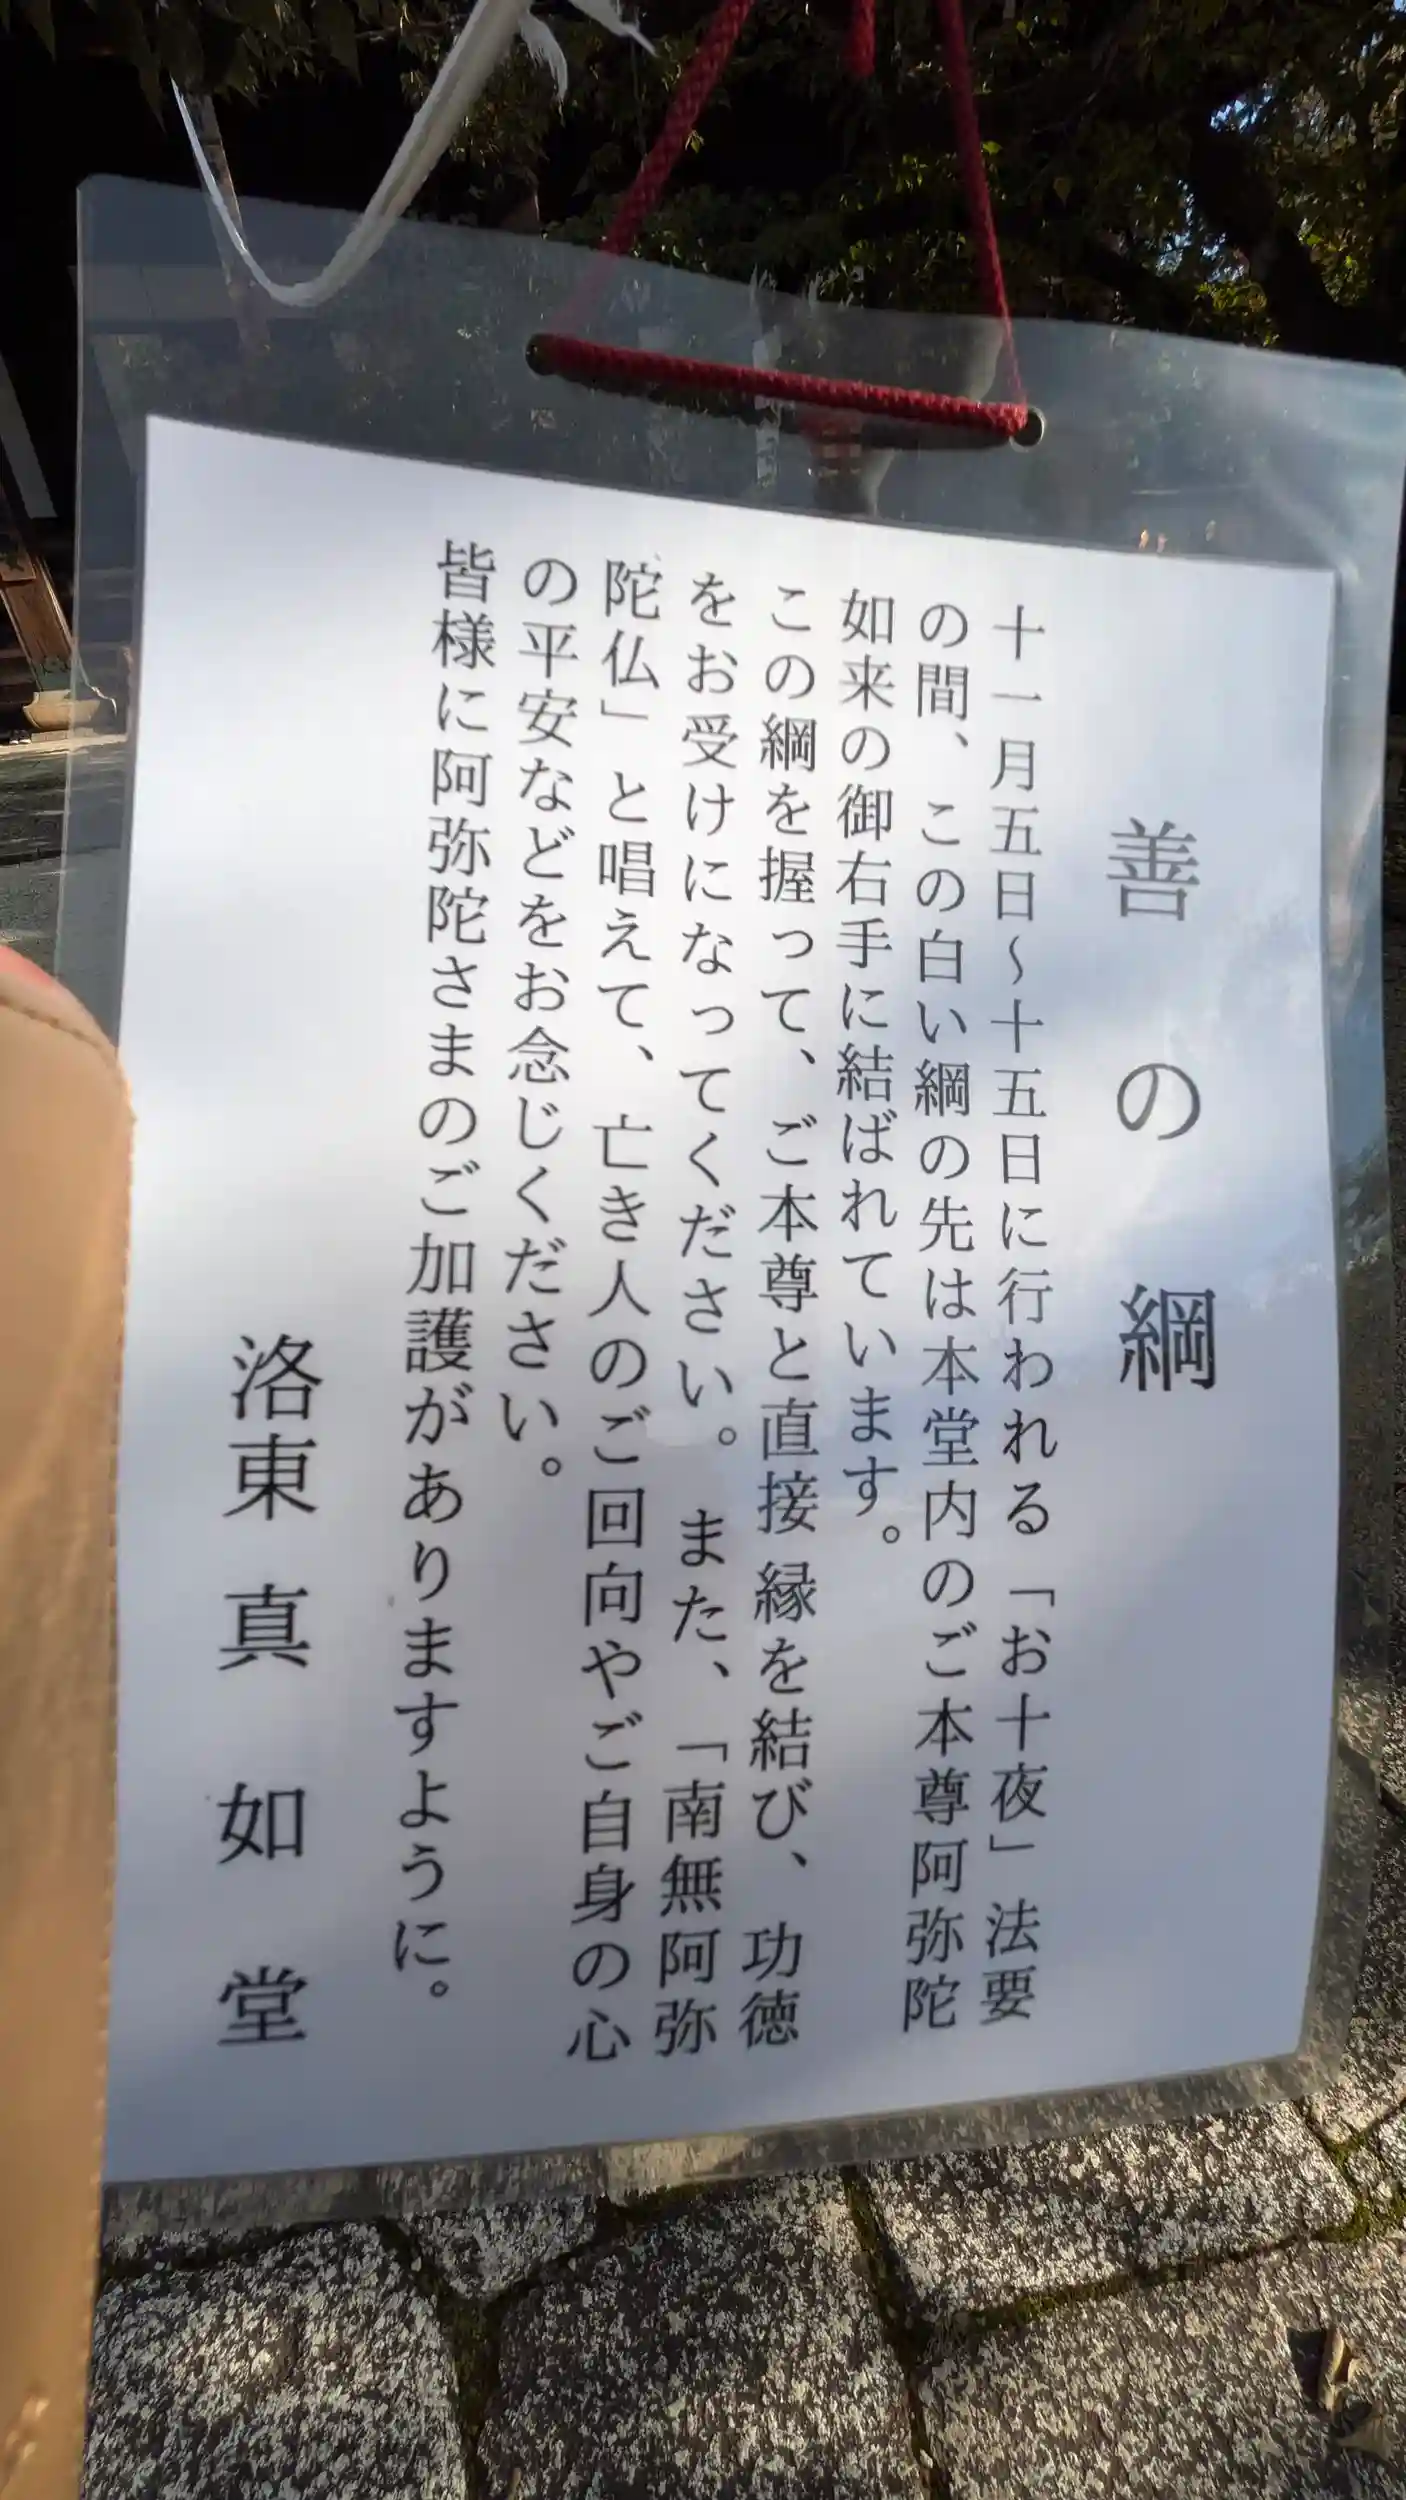 善の綱
十一月五日～十五日に行われる「お十夜」法要
の間、この白い綱の先は本堂内のご本尊阿弥陀
如来の御右手に結ばれています。
この綱を握って、ご本尊と直接縁を結び、功徳
をお受けになってください。また、「南無阿弥
陀仏」と唱えて、亡き人のご回向やご自身の心
の平安などをお念じください。
皆様に阿弥陀さまのご加護がありますように。
洛東 真如堂